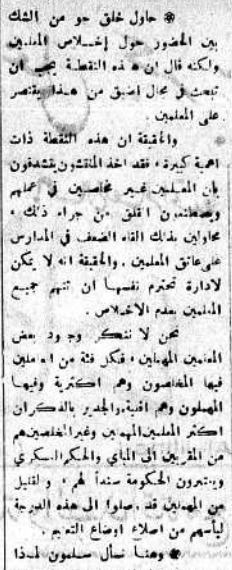 ● حاول خلق جو من الشك
بين الحضور حول إخلاص المعلمين
ولكنه قال ان هذه النقطة يجب ان
تبحث في مجال اضيق من هذا يقتصر
على المعلمين .
والحقيقة ان هذه النقطة ذات
اهمية كبيرة ، فقد اخذ المفتشون يتشدقون
بان المعلمين غير مخلصين في عملهم
ويصطنعون القلق من جراء ذلك ،
محاولين بذلك القاء الضعف في المدارس
على عاتق المعلمين . والحقيقة انه لا يمكن
لادارة تحترم نفسها ان تتهم جميع
المعلمين بعدم الاخلاص .
نحن لا نتنكر وجود بعض
المعلمين المهملين ، فكل فئة من العاملين
فيها المخلصون وهم اكثرية وفيها
المهملون وهم اقلية . والجدير بالذكر ان
اكثر المعلمين المهملين وغير المخلصين هم
من المقربين الى المباي والحكم العسكري
ويعتبرون الحكومة سنداً لهم ، والقليل
من المهملين قد وصلوا الى هذه الدرجة
ليأسهم من اصلاح اوضاع التعليم .
● وهنا نسأل سلمون لماذا